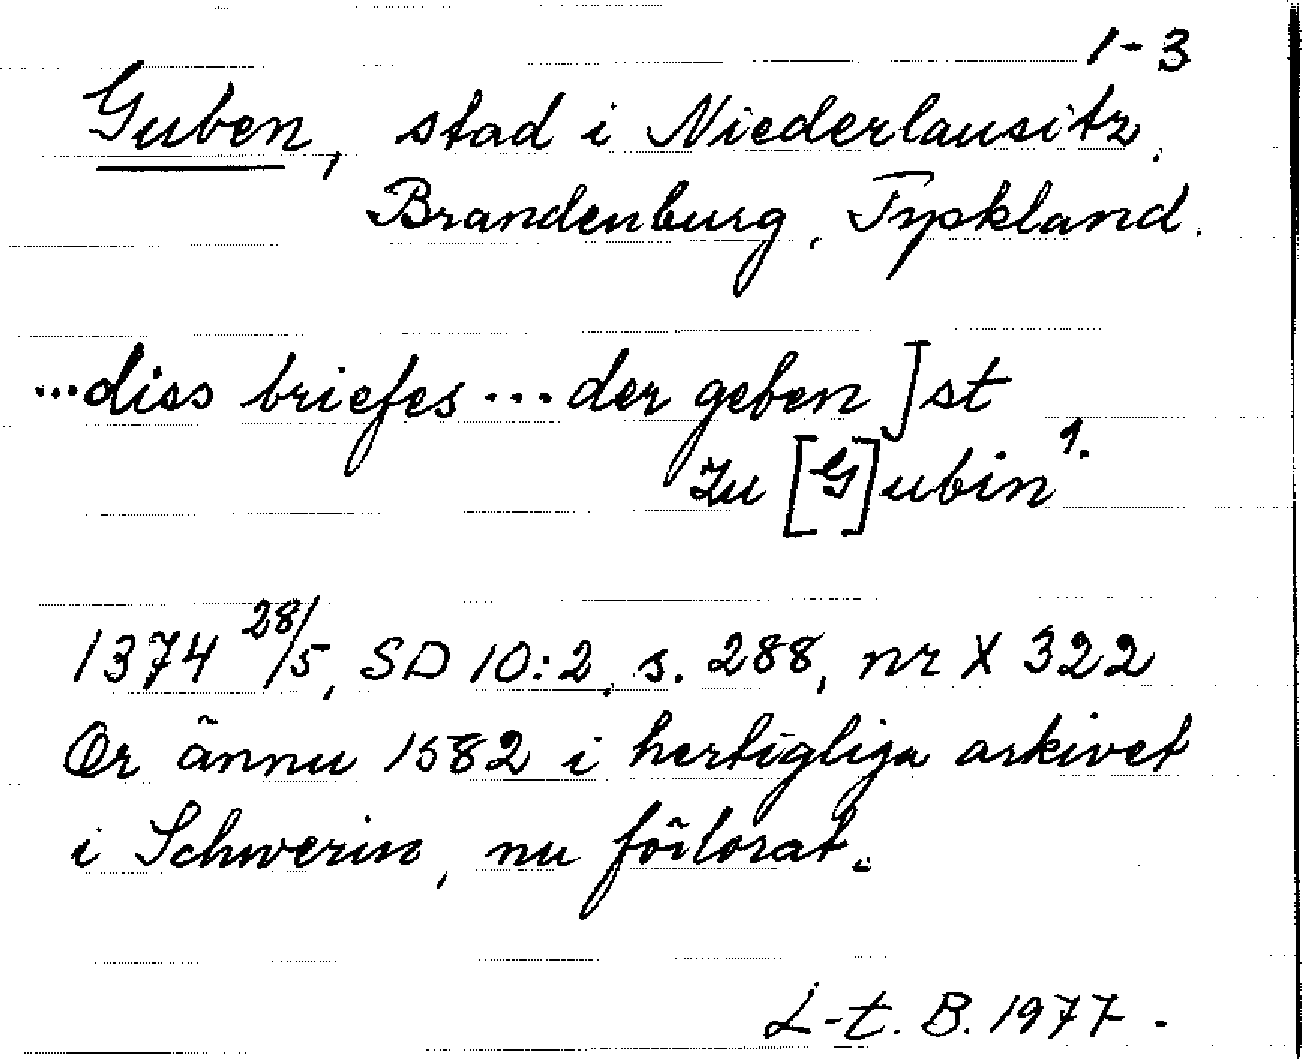 1-3
Guben, stad i Niederlausitz,
Brandenburg, Tyskland.
...diss briefes... der geben Jst
zu [G]ubin¹.
1374 28/5, SD 10:2, s. 288, nr X 322
Or ännu 1582 i hertigliga arkivet
i Schwerin, nu förlorat.
L-t. B. 1977.